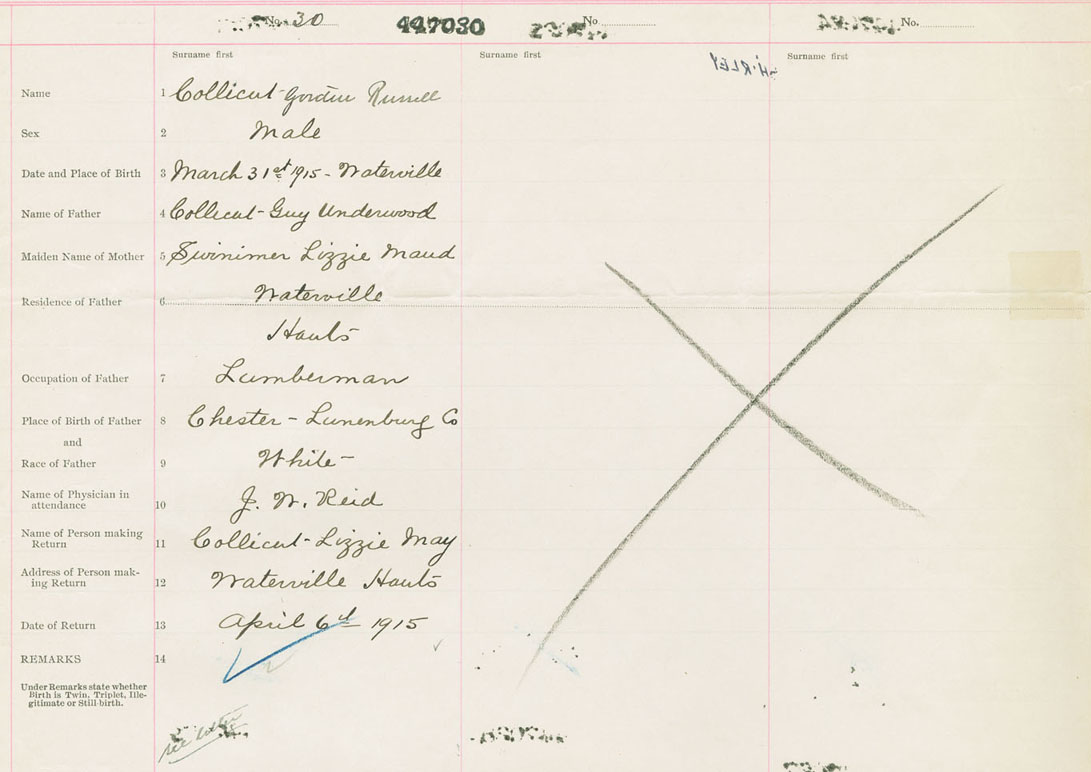 No. 30
447030
No.
No.
Surname first
Surname first
Surname first
Name 1 Collicut-Gordon Russell
Sex 2 Male
Date and Place of Birth 3 March 31st 1915 - Waterville
Name of Father 4 Collicut-Guy Underwood
Maiden Name of Mother 5 Swinimer Lizzie Maud
Residence of Father 6 Waterville
Hants
Occupation of Father 7 Lumberman
Place of Birth of Father 8 Chester - Lunenburg Co
and
Race of Father 9 White -
Name of Physician in
attendance 10 J. W. Reid
Name of Person making
Return 11 Collicut-Lizzie May
Address of Person mak-
ing Return 12 Waterville Hants
Date of Return 13 April 6th 1915
REMARKS 14
Under Remarks state whether
Birth is Twin, Triplet, Ille-
gitimate or Still-birth.
see letter